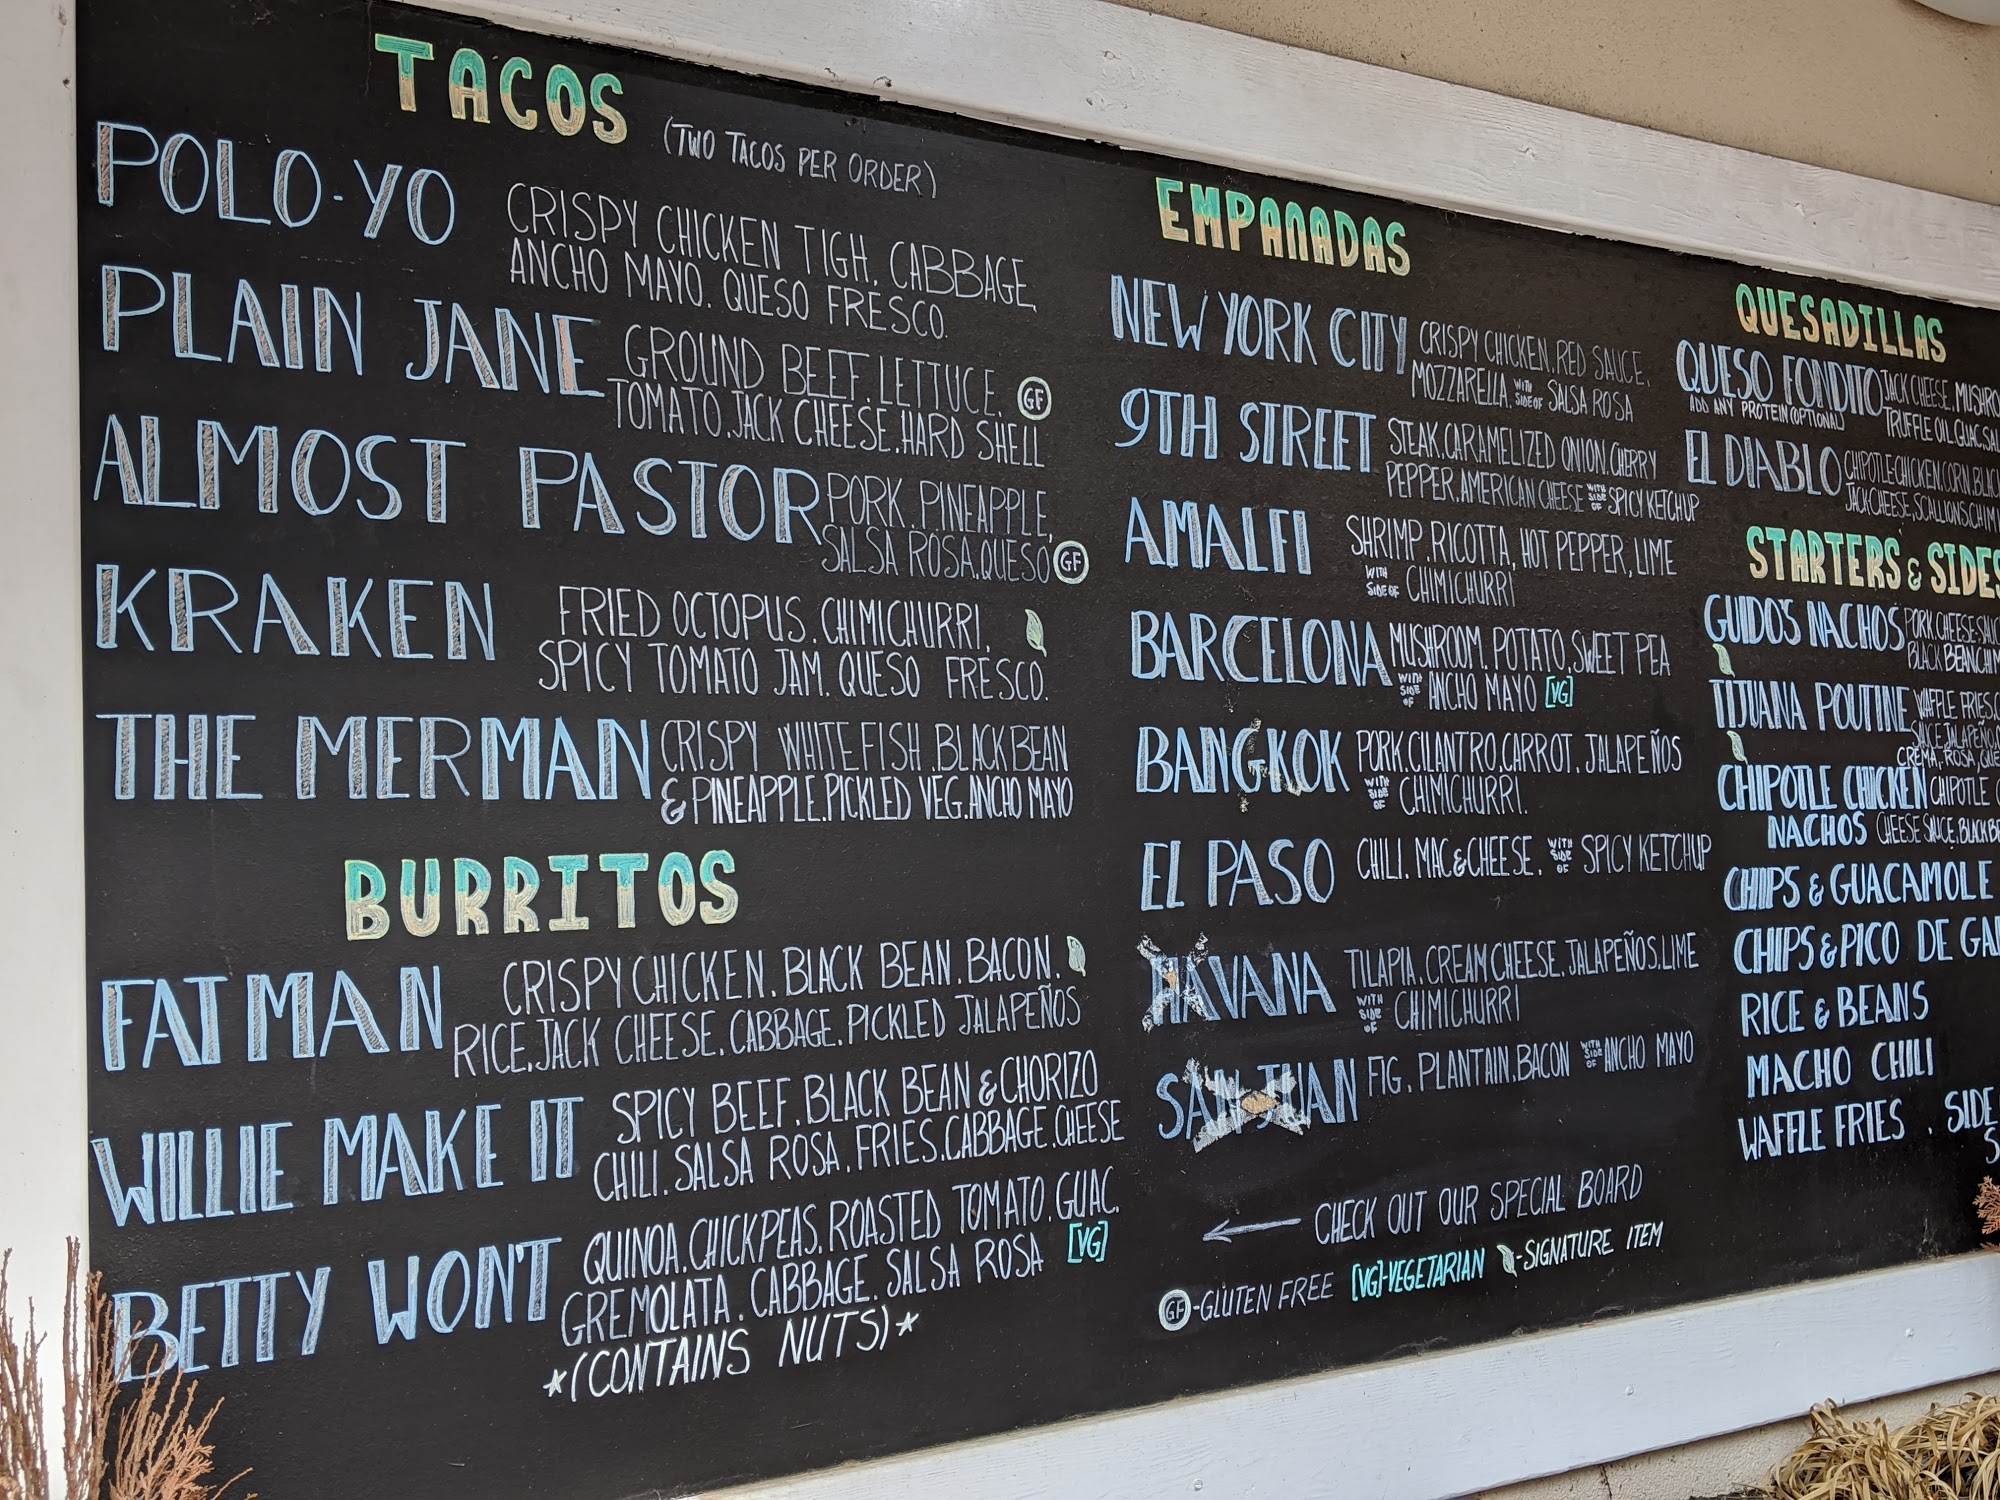 TACOS
(TWO TACOS PER ORDER)
POLO-YO
CRISPY CHICKEN TIGH. CABBAGE,
ANCHO MAYO. QUESO FRESCO.
PLAIN JANE
GROUND BEEF. LETTUCE. GF
TOMATO. JACK CHEESE. HARD SHELL
ALMOST PASTOR
PORK. PINEAPPLE,
SALSA ROSA. QUESO GF
KRAKEN
FRIED OCTOPUS. CHIMICHURRI.
SPICY TOMATO JAM. QUESO FRESCO.
THE MERMAN
CRISPY WHITE FISH. BLACK BEAN
& PINEAPPLE. PICKLED VEG. ANCHO MAYO
BURRITOS
FATMAN
CRISPY CHICKEN. BLACK BEAN. BACON.
RICE. JACK CHEESE. CABBAGE. PICKLED JALAPEÑOS
WILLIE MAKE IT
SPICY BEEF. BLACK BEAN & CHORIZO
CHILI. SALSA ROSA. FRIES. CABBAGE. CHEESE
BETTY WON'T
QUINOA. CHICKPEAS. ROASTED TOMATO. GUAC.
GREMOLATA. CABBAGE. SALSA ROSA [VG]
*(CONTAINS NUTS)*
EMPANADAS
NEW YORK CITY
CRISPY CHICKEN. RED SAUCE.
MOZZARELLA. WITH SIDE OF SALSA ROSA
9TH STREET
STEAK. CARAMELIZED ONION. CHERRY
PEPPER. AMERICAN CHEESE WITH SIDE OF SPICY KETCHUP
AMALFI
SHRIMP. RICOTTA, HOT PEPPER, LIME
WITH SIDE OF CHIMICHURRI
BARCELONA
MUSHROOM. POTATO. SWEET PEA
WITH SIDE OF ANCHO MAYO [VG]
BANGKOK
PORK. CILANTRO. CARROT. JALAPEÑOS
WITH SIDE OF CHIMICHURRI.
EL PASO
CHILI. MAC & CHEESE. WITH SIDE OF SPICY KETCHUP
HAVANA
TILAPIA. CREAM CHEESE. JALAPEÑOS. LIME
WITH SIDE OF CHIMICHURRI
SAN JUAN
FIG. PLANTAIN. BACON WITH SIDE OF ANCHO MAYO
CHECK OUT OUR SPECIAL BOARD
GF-GLUTEN FREE [VG]-VEGETARIAN -SIGNATURE ITEM
QUESADILLAS
QUESO FONDITO
ADD ANY PROTEIN (OPTIONAL)
JACK CHEESE. MUSHRO
TRUFFLE OIL. GUAC. SAL
EL DIABLO
CHIPOTLE CHICKEN. CORN. BLAC
JACK CHEESE, SCALLIONS. CHIMI
STARTERS & SIDES
GUIDO'S NACHOS
PORK. CHEESE SAUC
BLACK BEAN. CHIM
TIJUANA POUTINE
WAFFLE FRIES. C
SAUCE. JALAPEÑO.
CREMA, ROSA, QUE
CHIPOTLE CHICKEN
NACHOS
CHIPOTLE C
CHEESE SAUCE, BLACK BE
CHIPS & GUACAMOLE
CHIPS & PICO DE GAL
RICE & BEANS
MACHO CHILI
WAFFLE FRIES . SIDE
S